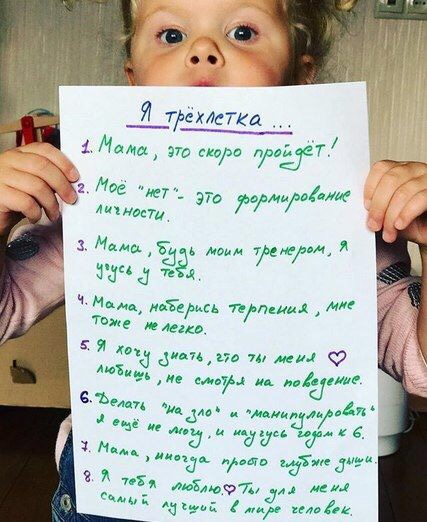 Я трёхлетка...
1. Мама, это скоро пройдёт!
2. Моё "нет" - это формирование
личности.
3. Мама, будь моим тренером, я
учусь у тебя.
4. Мама, наберись терпения, мне
тоже не легко.
5. Я хочу знать, что ты меня ♡
любишь, не смотря на поведение.
6. Делать "на зло" и "манипулировать"
я ещё не могу, и научусь годам к 6.
7. Мама, иногда просто глубже дыши.
8. Я тебя люблю.♡ Ты для меня
самый лучший в мире человек.